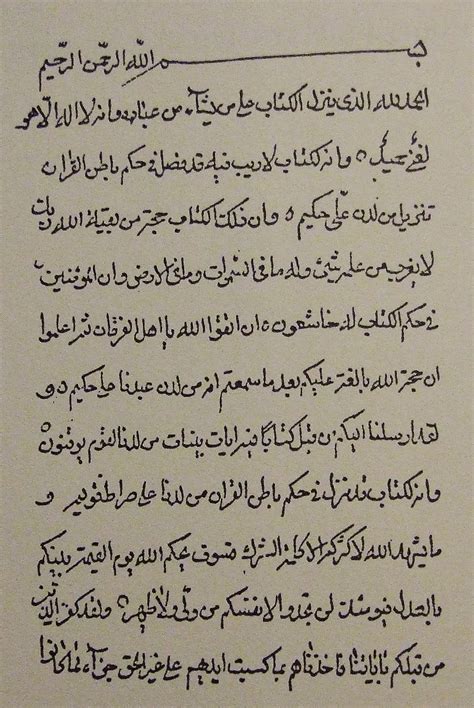 بسم الله الرحمن الرحيم
الحمد لله الذي ينزل الكتاب على من يشآء من عباده وانه لا اله الا هو
لغني حميد ٥ وانه لكتاب لا ريب فيه قد فصل في حكم باطن القران
تنزيل من لدن علي حكيم ٥ وان ذلك الكتاب حجة من بقية الله
لا يعزب من علمه شيئ وله ما في السموات وما في الارض وان المؤمنين
في حكم الكتاب له خاشعون ٥ ان اتقوا الله يا اهل الفرقان ثم اعلموا
ان حجة الله بالغة عليكم بعد ما سمعتم امر من لدن عبدنا علي حكيم ٥ و
لقد ارسلنا اليكم من قبل كتابا فيه ايات بينات من لدنا لقوم يوقنون
وانه لكتاب قد نزل في حكم باطن القران من لدنا على صراط قويم و
ما يشهد الله لاكثركم الا كلمة الشرك فسوف يحكم الله يوم القيمة بينكم
بالعدل فيومئذ لن تجدوا لانفسكم من ولي ولا ظهير ٥ ولقد كفر الذين
من قبلكم باياتنا فاخذناهم بما كسبت ايديهم على غير الحق جزآء بما كانوا